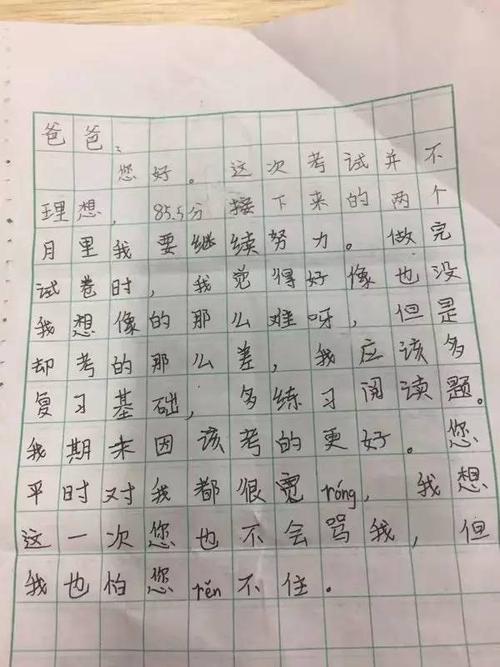 爸爸:
您好。这次考试并不
理想,85.5分接下来的两个
月里我要继续努力。做完
试卷时,我觉得好像也没
我想像的那么难呀,但是
却考的那么差,我应该多
复习基础,多练习阅读题。
我期末因该考的更好。您
平时对我都很宽róng,我想
这一次您也不会骂我,但
我也怕您rěn不住。